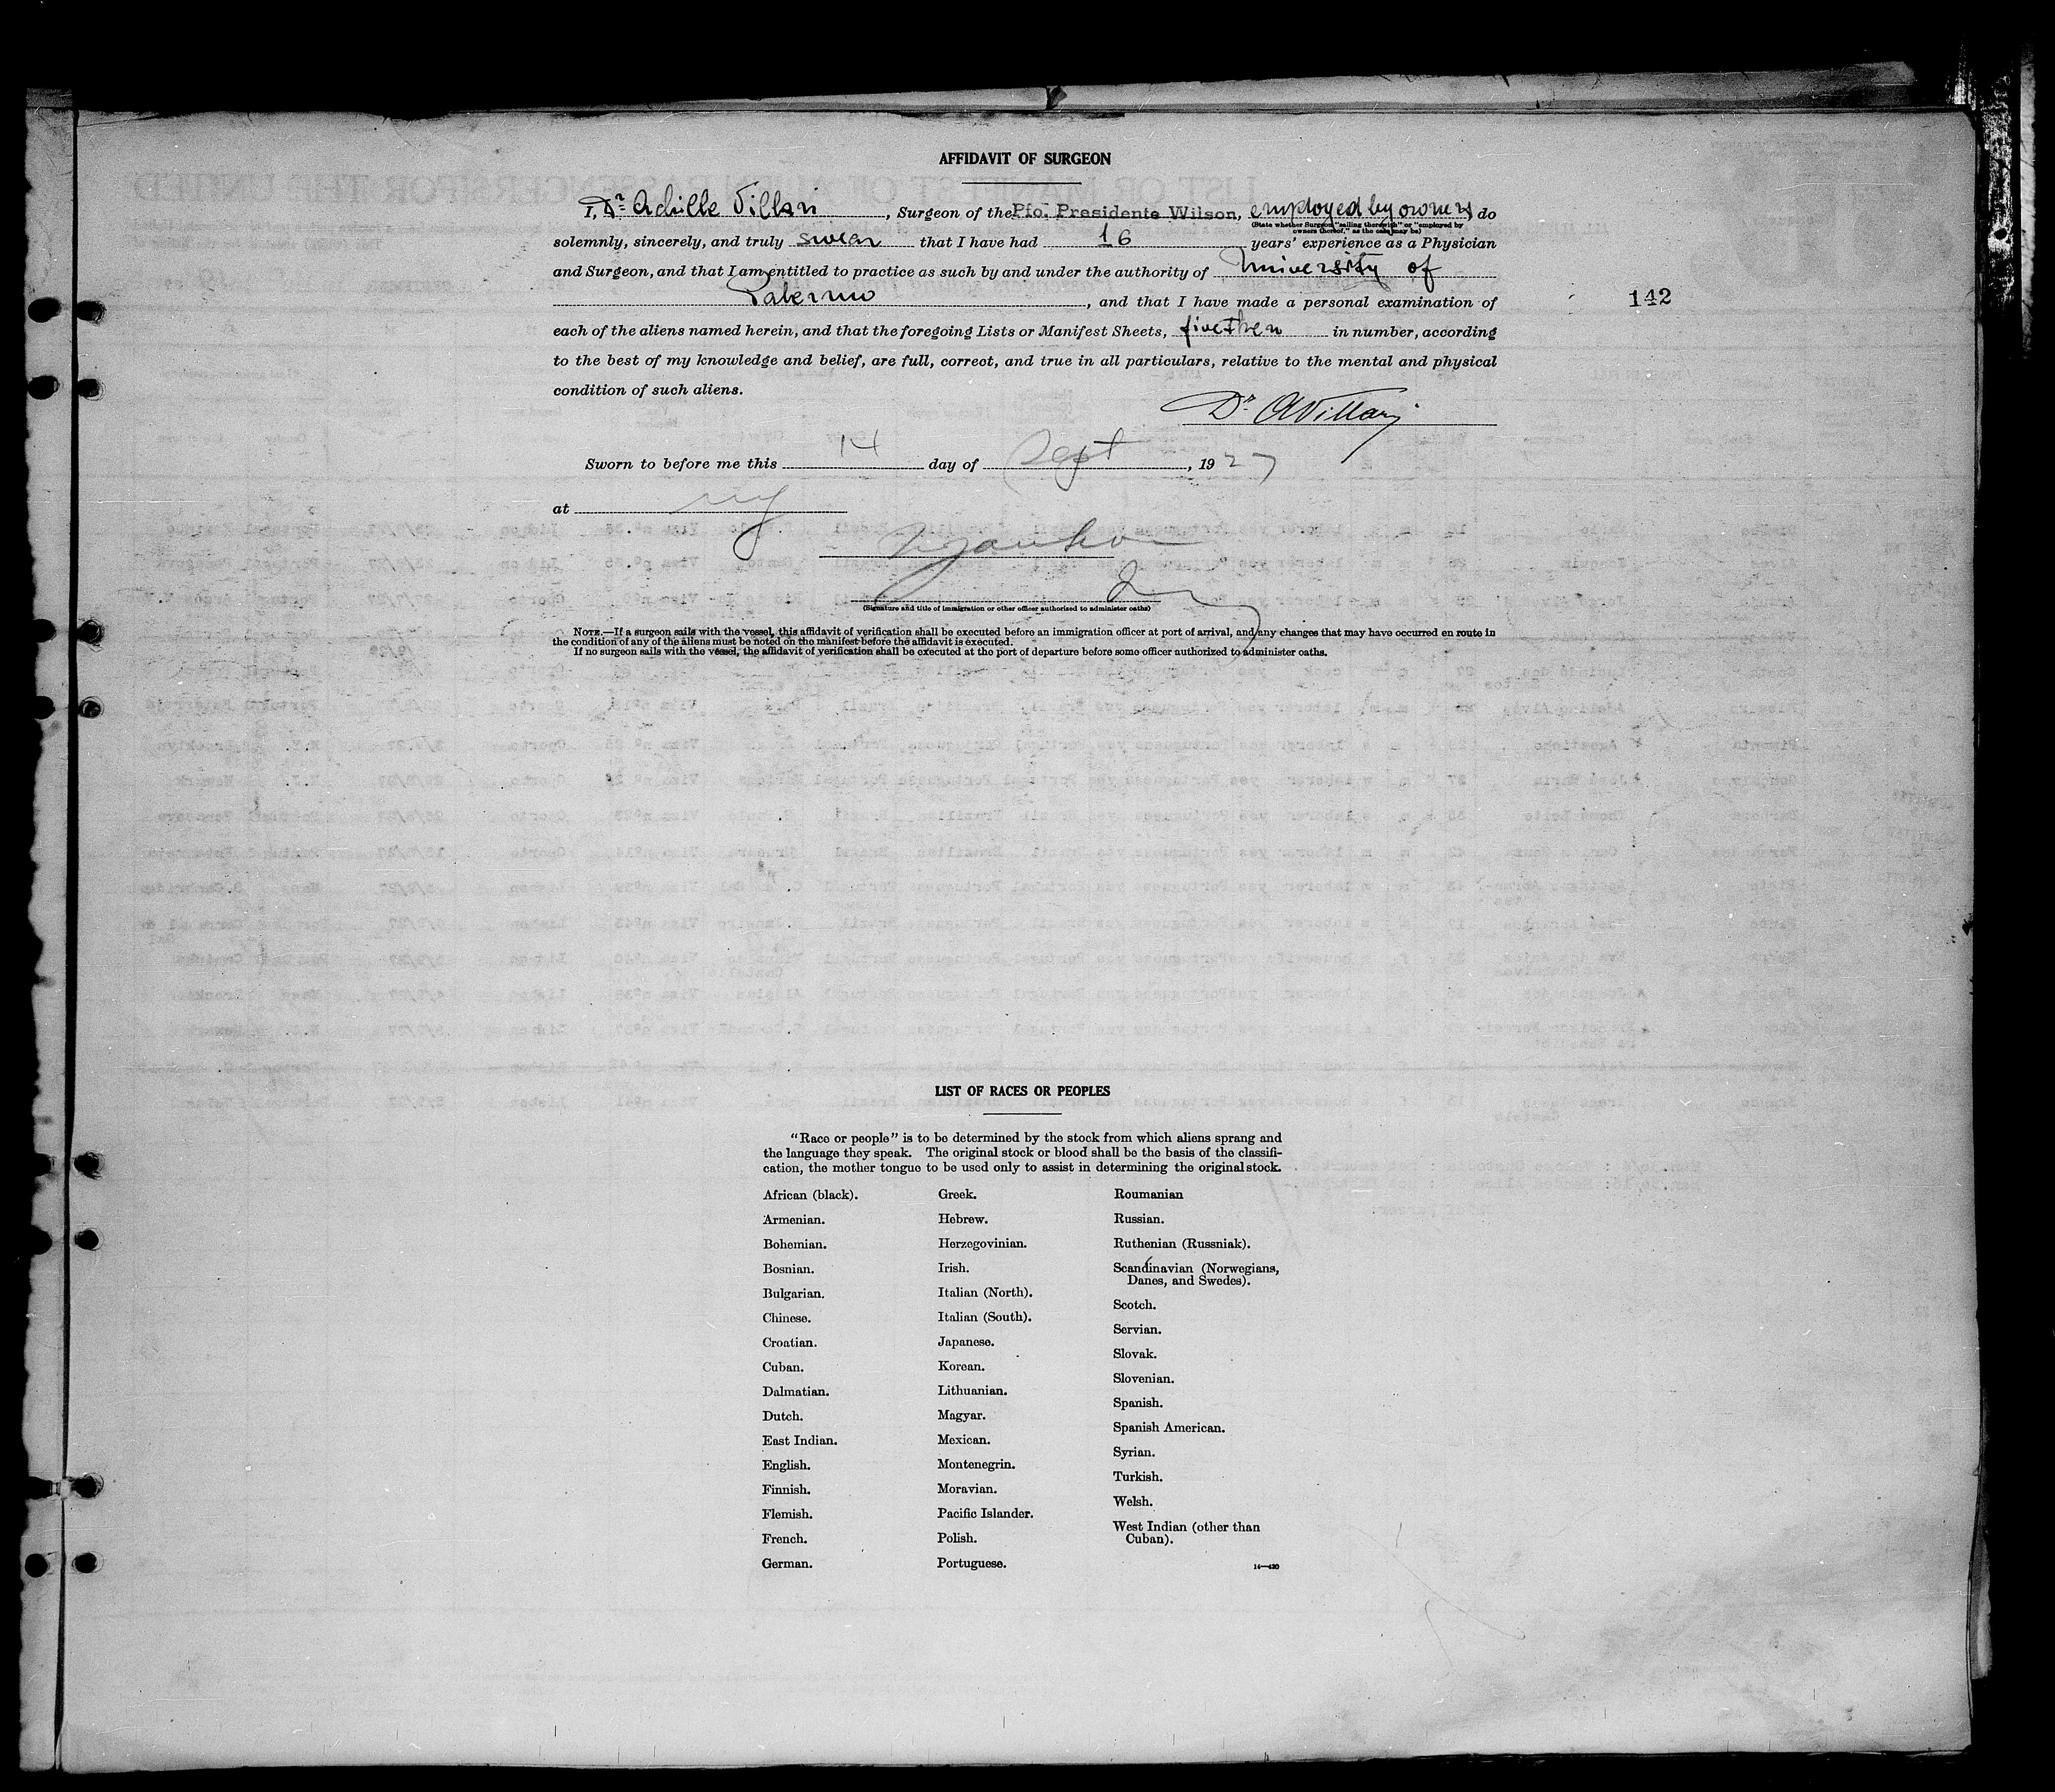 AFFIDAVIT OF SURGEON
I, Dr Achille Villari, Surgeon of the Pfo. Presidente Wilson, employed by owners do
(State whether Surgeon "sailing therewith" or "employed by
owners thereof," as the case may be)
solemnly, sincerely, and truly swear that I have had 16 years' experience as a Physician
and Surgeon, and that I am entitled to practice as such by and under the authority of University of
Palermo, and that I have made a personal examination of
142
each of the aliens named herein, and that the foregoing Lists or Manifest Sheets, fivetheen in number, according
to the best of my knowledge and belief, are full, correct, and true in all particulars, relative to the mental and physical
condition of such aliens.
Dr AVillari
Sworn to before me this 14 day of Sept, 1927
at ny
(Signature and title of immigration or other officer authorized to administer oaths)
NOTE.—If a surgeon sails with the vessel, this affidavit of verification shall be executed before an immigration officer at port of arrival, and any changes that may have occurred en route in
the condition of any of the aliens must be noted on the manifest before the affidavit is executed.
If no surgeon sails with the vessel, the affidavit of verification shall be executed at the port of departure before some officer authorized to administer oaths.
LIST OF RACES OR PEOPLES
"Race or people" is to be determined by the stock from which aliens sprang and
the language they speak. The original stock or blood shall be the basis of the classifi-
cation, the mother tongue to be used only to assist in determining the original stock.
African (black).
Armenian.
Bohemian.
Bosnian.
Bulgarian.
Chinese.
Croatian.
Cuban.
Dalmatian.
Dutch.
East Indian.
English.
Finnish.
Flemish.
French.
German.
Greek.
Hebrew.
Herzegovinian.
Irish.
Italian (North).
Italian (South).
Japanese.
Korean.
Lithuanian.
Magyar.
Mexican.
Montenegrin.
Moravian.
Pacific Islander.
Polish.
Portuguese.
Roumanian
Russian.
Ruthenian (Russniak).
Scandinavian (Norwegians,
Danes, and Swedes).
Scotch.
Servian.
Slovak.
Slovenian.
Spanish.
Spanish American.
Syrian.
Turkish.
Welsh.
West Indian (other than
Cuban).
14—420